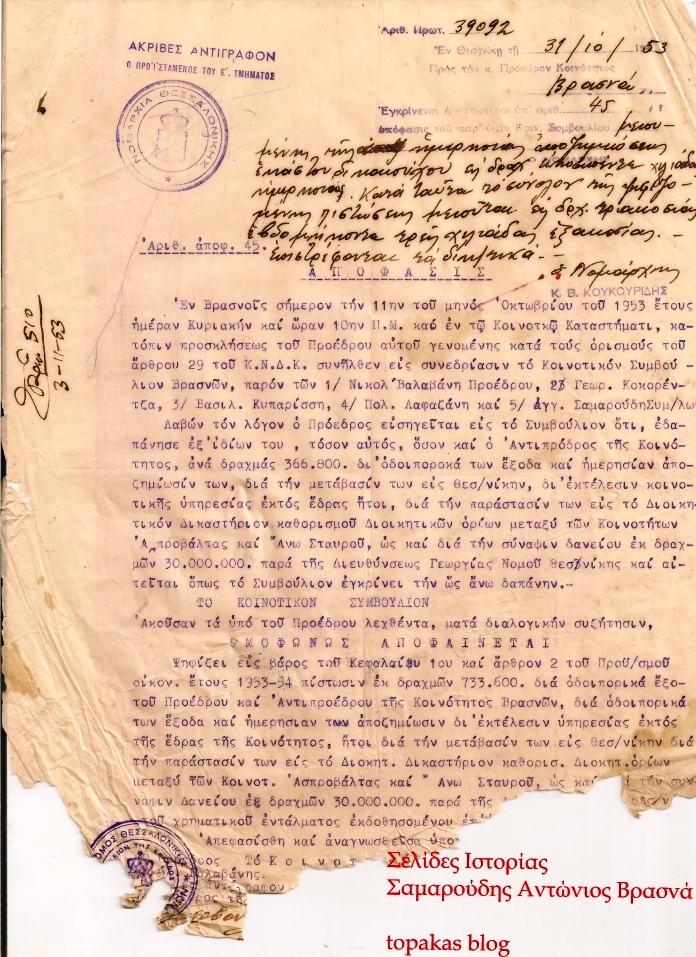 Ἀριθ. Πρωτ. 39092
ΑΚΡΙΒΕΣ ΑΝΤΙΓΡΑΦΟΝ
Ο ΠΡΟΪΣΤΑΜΕΝΟΣ ΤΟΥ Ε΄. ΤΜΗΜΑΤΟΣ
Ἐν Θεσ)νίκῃ τῇ 31/10/1953
Πρὸς τὸν κ. Πρόεδρον Κοινότητος
Βρασνά
ΝΟΜΑΡΧΙΑ ΘΕΣΣΑΛΟΝΙΚΗΣ
Ἐγκρίνεται ἡ ὑπ' ἀριθ. 45
ἀπόφασις τοῦ παρ' ὑμῖν Κοιν. Συμβουλίου μειου-
μένης τῆς ἡμερησίας ἀποζημιώσεως
ἑκάστου δικαιούχου εἰς δραχ. χιλιάδας
ἡμερησίως. Κατὰ ταῦτα τὸ σύνολον τῆς ψηφιζο-
μένης πιστώσεως μειοῦται εἰς δρχ. τριακοσίας
ἑβδομήκοντα τρεῖς χιλιάδας ἑξακοσίας.-
Ἐπιστρέφονται τὰ
Ἀριθ. ἀποφ. 45.
ὁ Νομάρχης
Κ. Β. ΚΟΥΚΟΥΡΙΔΗΣ
ΑΠΟΦΑΣΙΣ
510
3-11-53
Ἐν Βρασνοῖς σήμερον τήν 11ην τοῦ μηνός Ὀκτωβρίου τοῦ 1953 ἔτους
ἡμέραν Κυριακήν καί ὥραν 10ην Π.Μ καί ἐν τῷ Κοινοτκῷ Καταστήματι, κα-
τόπιν προσκλήσεως τοῦ Προέδρου αὐτοῦ γενομένης κατά τούς ὁρισμούς τοῦ
ἄρθρου 29 τοῦ Κ.Ν.Δ.Κ συνῆλθεν εἰς συνεδρίασιν τό Κοινοτικόν Συμβού-
λιον Βρασνῶν, παρόν τῶν 1/ Νικολ Βαλαβάνη Προέδρου, 2/ Γεωρ. Κοκορέν-
τζα, 3/ Βασιλ. Κυπαρίσση, 4/ Πολ. Λαφαζάνη καί 5/ Ἀγγ. ΣαμαρούδηΣυμ/λων
Λαβών τόν λόγον ὁ Πρόεδρος εἰσηγεῖται εἰς τό Συμβούλιον ὅτι, ἐδα-
πάνησε ἐξ ἰδίων του , τόσον αὐτός, ὅσον καί ὁ Ἀντιπρόδρος τῆς Κοινό-
τητος, ἀνά δραχμάς 366.800. δι ὁδοιποροκά των ἔξοδα καί ἡμερησίαν ἀπο-
ζημίωσίν των, διά τήν μετάβασίν των εἰς θεσ/νίκην, δι ἐκτέλεσιν κοινο-
τικῆς ὑπηρεσίας ἐκτός ἕδρας ἤτοι, διά τήν παράστασίν των εἰς τό Διοικη-
τικόν Δικαστήριον καθορισμοῦ Διοικητικῶν ὁρίων μεταξύ τῶν Κοινοτήτων
Ἀσπροβάλτας καί Ἄνω Σταυροῦ, ὡς καί διά τήν σύναψιν δανείου ἐκ δραχ-
μῶν 30.000.000. παρά τῆς Διευθύνσεως Γεωργίας Νομοῦ θεσ/νίκης καί αἰ-
τεῖται ὅπως τό Συμβούλιον ἐγκρίνει τήν ὡς ἄνω δαπάνην.-
ΤΟ ΚΟΙΝΟΤΙΚΟΝ ΣΥΜΒΟΥΛΙΟΝ
Ἀκοῦσαν τά ὑπό τοῦ Προέδρου λεχθέντα, ματά διαλογικήν συζήτησιν,
ΟΜΟΦΩΝΩΣ ΑΠΟΦΑΙΝΕΤΑΙ
Ψηφίζει εἰς βάρος τοῦ Κεφαλαίου 1ου καί ἄρθρον 2 τοῦ Προϋ/σμοῦ
οἰκον. ἔτους 1953-94 πίστωσιν ἐκ δραχμῶν 733.600. διά ὁδοιπορικά ἔξο-
τοῦ Προέδρου καί Ἀντιπροέδρου τῆς Κοινότητος Βρασνῶν, διά ὁδοιπορικά
των ἔξοδα καί ἡμερησίαν των ἀποζημίωσιν δι ἐκτέλεσιν ὑπηρεσίας ἐκτός
τῆς ἕδρας τῆς Κοινότητος, ἤτοι διά τήν μετάβασίν των εἰς θεσ/νίκην διά
τήν παράστασίν των εἰς τό Διοκητ. Δικαστήριον καθορισ. Διοκητ.ὁρίων
μεταξύ τῶν Κοινοτ. Ἀσπροβάλτας καί " Ανω Σταυροῦ, ὡς καί τήν συν-
ναψιν Δανείου ἐξ δραχμῶν 30.000.000. παρά τῆς
τοῦ χρηματικοῦ ἐντάλματος ἐκδοθησομένου
Ἀπεφασίσθη καί ἀναγνωσθεῖσα ὑπο
Τό Κοινοτ
ΝΟΜΟΣ ΘΕΣΣΑΛΟΝΙΚΗΣ
Σελίδες Ιστορίας
Σαμαρούδης Αντώνιος Βρασνά
topakas blog